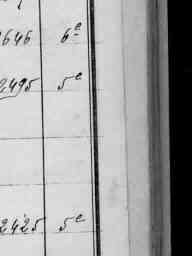 2646 6e
2495 5e
2425 5e